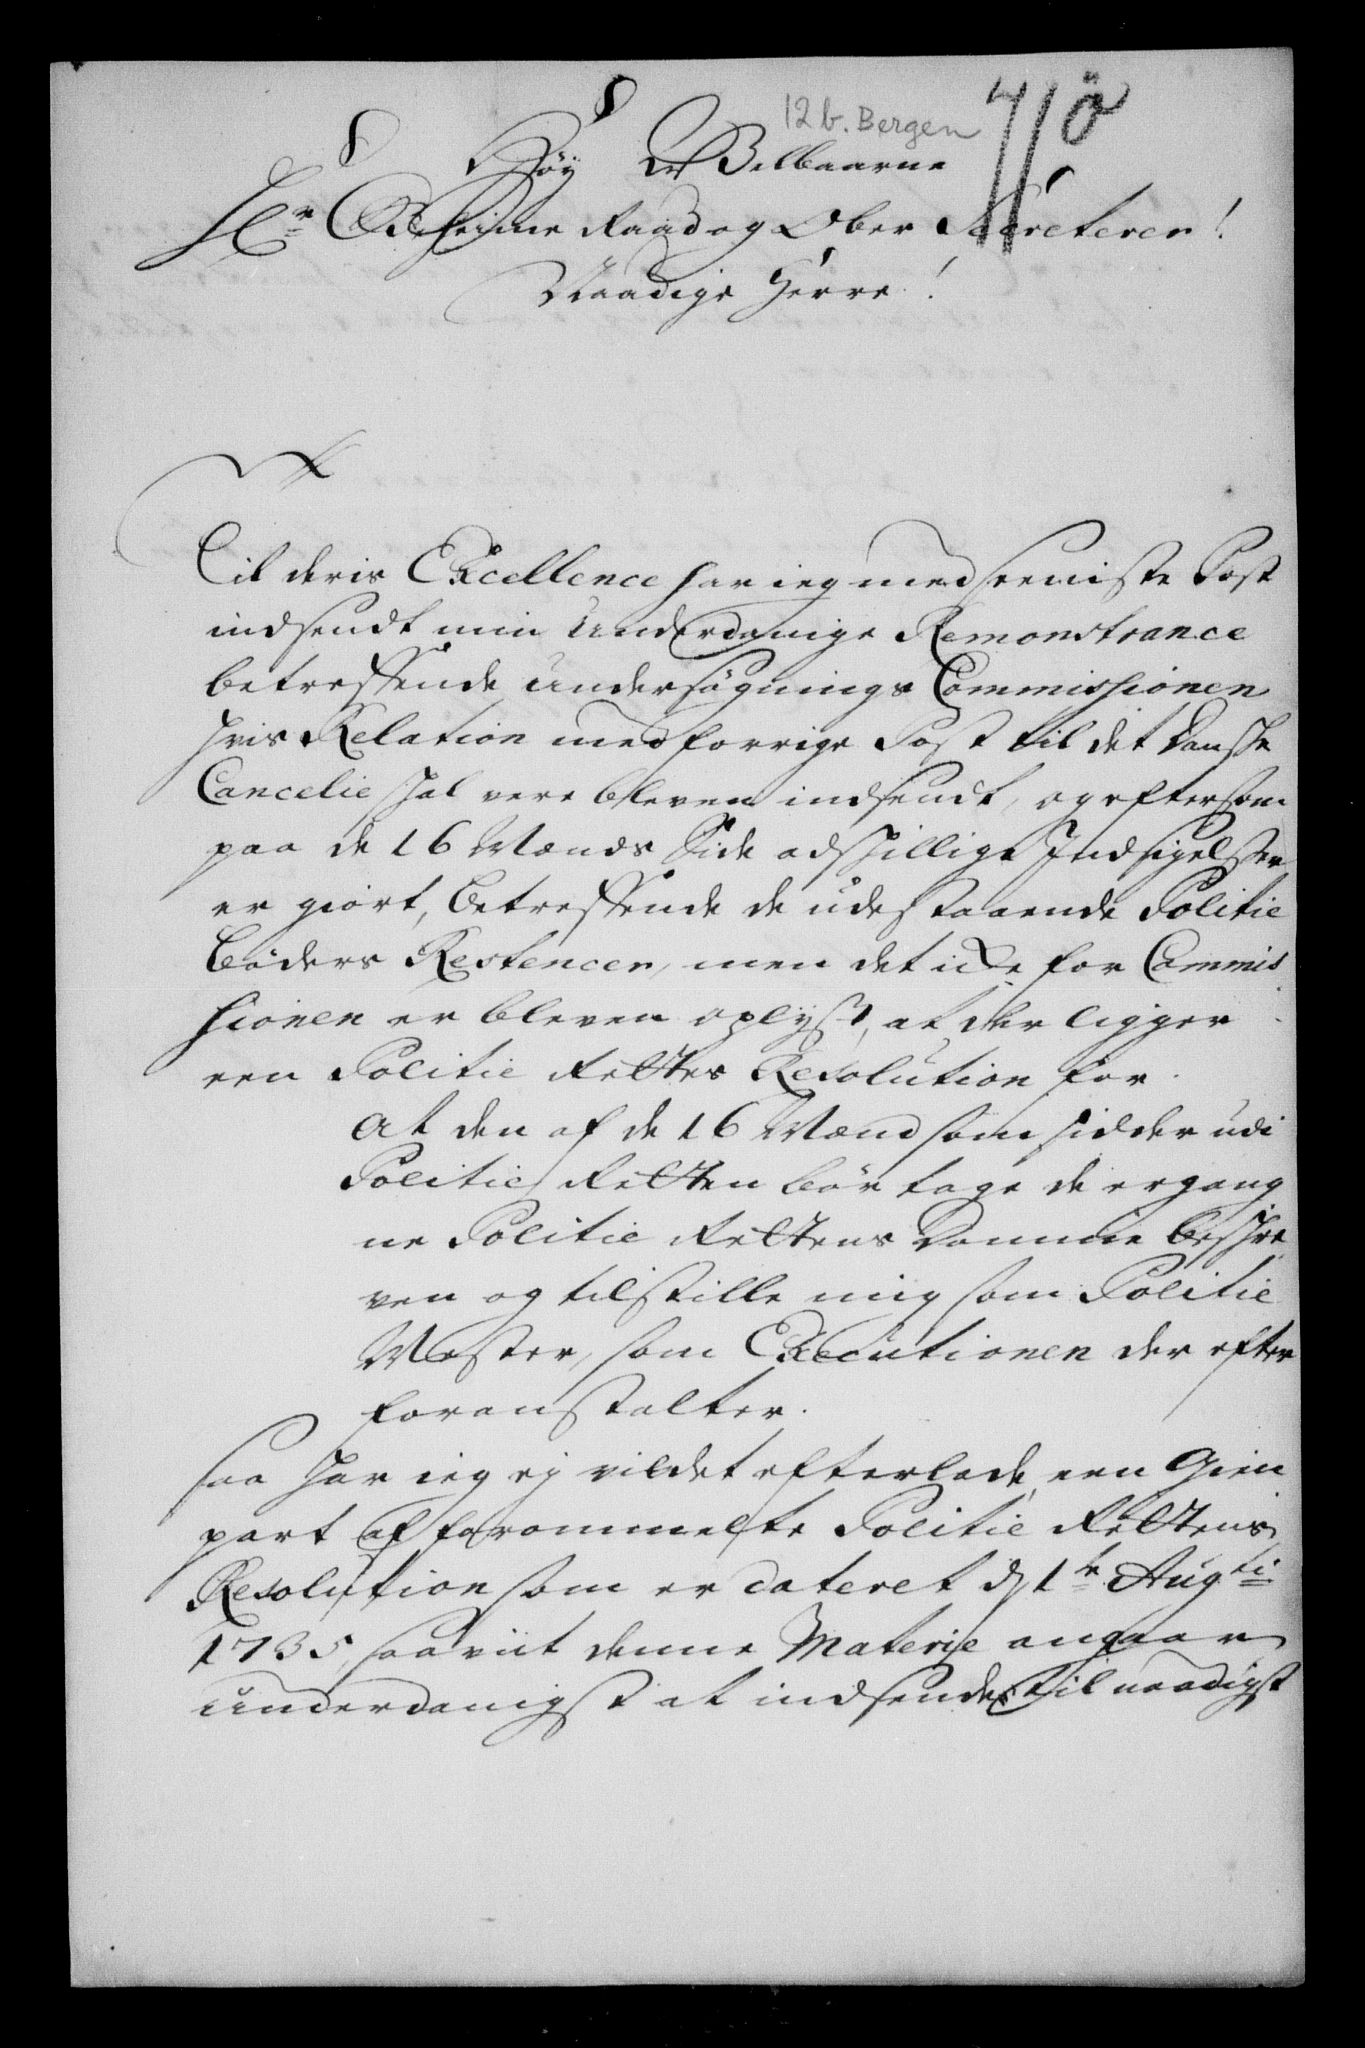 12 b. Bergen
Høy Velbaarne
Hr Geheime Raad og Ober Secreterer!
Naadige Herre!
Til deris Excellence har ieg med seeniste Post
indsendt min Underdanige Remonstrance
betreffende Undersøgnings Commissionen
hvis Relation med forrige Post til det Danske
Cancelie skal vere bleven indsendt, og eftersom
paa de 16 Mænds Side adskillige Indsigelser
er giort, betreffende de udestaaende Politie
bøders Restencer, men det icke for Commis
sionen er bleven oplyst, at der ligger
een Politie Rettes Resolution for
At den af de 16 Mænd som sidder udi
Politie Retten bør tage de ergang
ne Politie Rettens Domme beskre
ven og tilstille mig som Politie
Mester, som Executionen der efter
foranstalter.
saa har ieg ej vildet efterlade, een Gien
part af forommelte Politie Rettens
Resolution som er dateret d. 1te Augti
1735, saaviit denne Materie angaar
Underdanigst at indsende, til naadigst